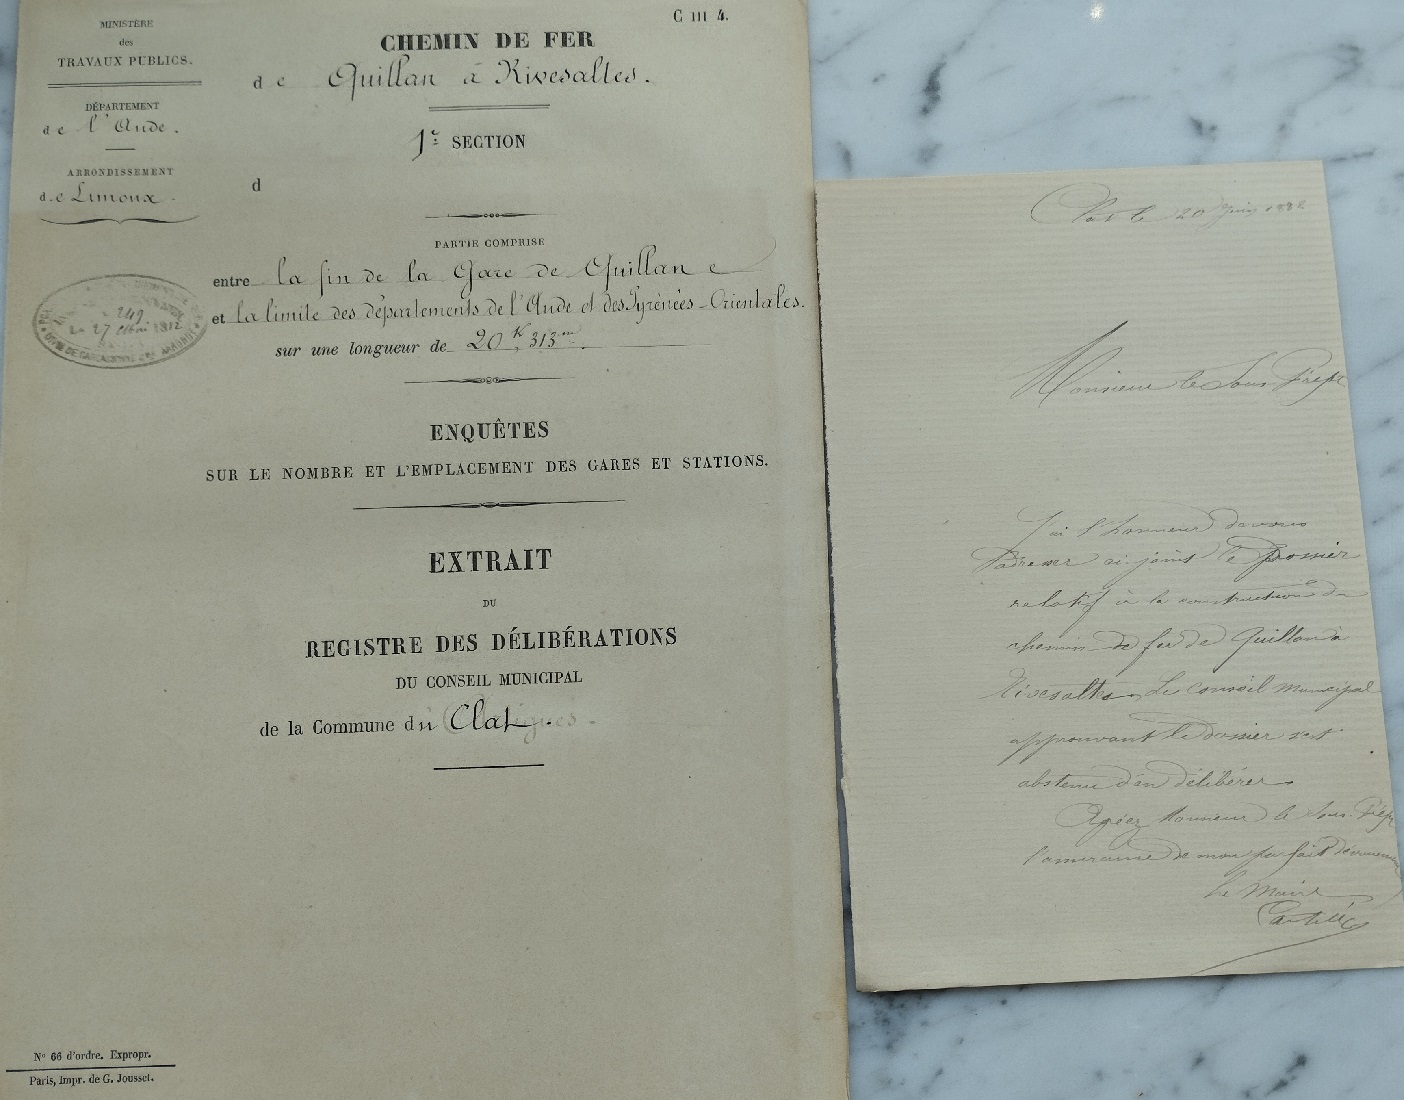 C III 4.
MINISTÈRE
des
TRAVAUX PUBLICS.
DÉPARTEMENT
de l'Aude.
ARRONDISSEMENT
de Limoux.
CHEMIN DE FER
de Quillan à Rivesaltes.
1re SECTION
d
PARTIE COMPRISE
entre la fin de la Gare de Quillan
et la limite des départements de l'Aude et des Pyrénées-Orientales.
sur une longueur de 20 K 313 m.
249
27
ENQUÊTES
SUR LE NOMBRE ET L'EMPLACEMENT DES GARES ET STATIONS.
EXTRAIT
DU
REGISTRE DES DÉLIBÉRATIONS
DU CONSEIL MUNICIPAL
de la Commune du Clat.
No 66 d'ordre. Expropr.
Paris, Impr. de G. Jousset.
le 20 Juin 1882
Monsieur le Sous Préfet
J'ai l'honneur de vous
adresser ci-joint le dossier
relatif à la construction du
chemin de fer de Quillan à
Rivesaltes. Le conseil municipal
approuvant le dossier s'est
abstenu d'en délibérer
Agréez Monsieur le Sous-Préfet
l'assurance de mon parfait dévouement
Le Maire